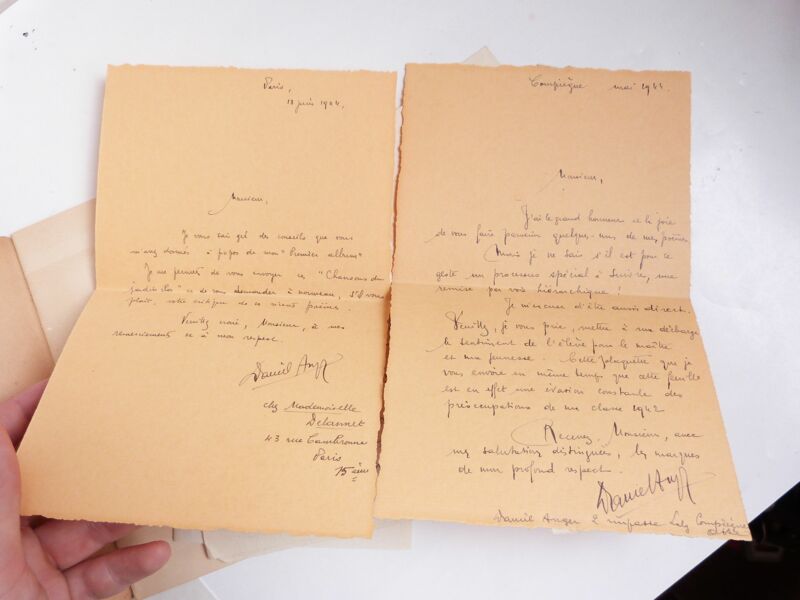 Paris,
18 juin 1944.
Monsieur,
Je vous sais gré des conseils que vous
m'avez donnés à propos de mon "Premier album"
Je me permets de vous envoyer ces "Chansons du
jadis" et de vous demander à nouveau, s'il vous
plaît, votre critique de ce récent poème.
Veuillez croire, Monsieur, à mes
remerciements et à mon respect.
Daniel Anger
chez Mademoiselle
Delannet
43 rue Cambronne
Paris
15ème
Compiègne mai 1944.
Monsieur,
J'ai le grand honneur et la joie
de vous faire parvenir quelques-uns de mes poèmes
Mais je ne sais s'il est pour ce
geste un processus spécial à suivre, une
remise par voie hiérarchique !
Je m'excuse d'être aussi direct.
Veuillez, je vous prie, mettre à ma décharge
le sentiment de l'élève pour le maître
et ma jeunesse. Cette plaquette que je
vous envoie en même temps que cette feuille
est en effet une évasion constante des
préoccupations de ma classe 1942
Recevez, Monsieur, avec
mes salutations distinguées, les marques
de mon profond respect.
Daniel Anger
Daniel Anger 2 impasse Compiègne
Oise